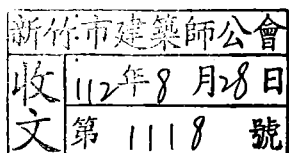 新竹市建築師公會
收文 112年8月28日
第 1118 號